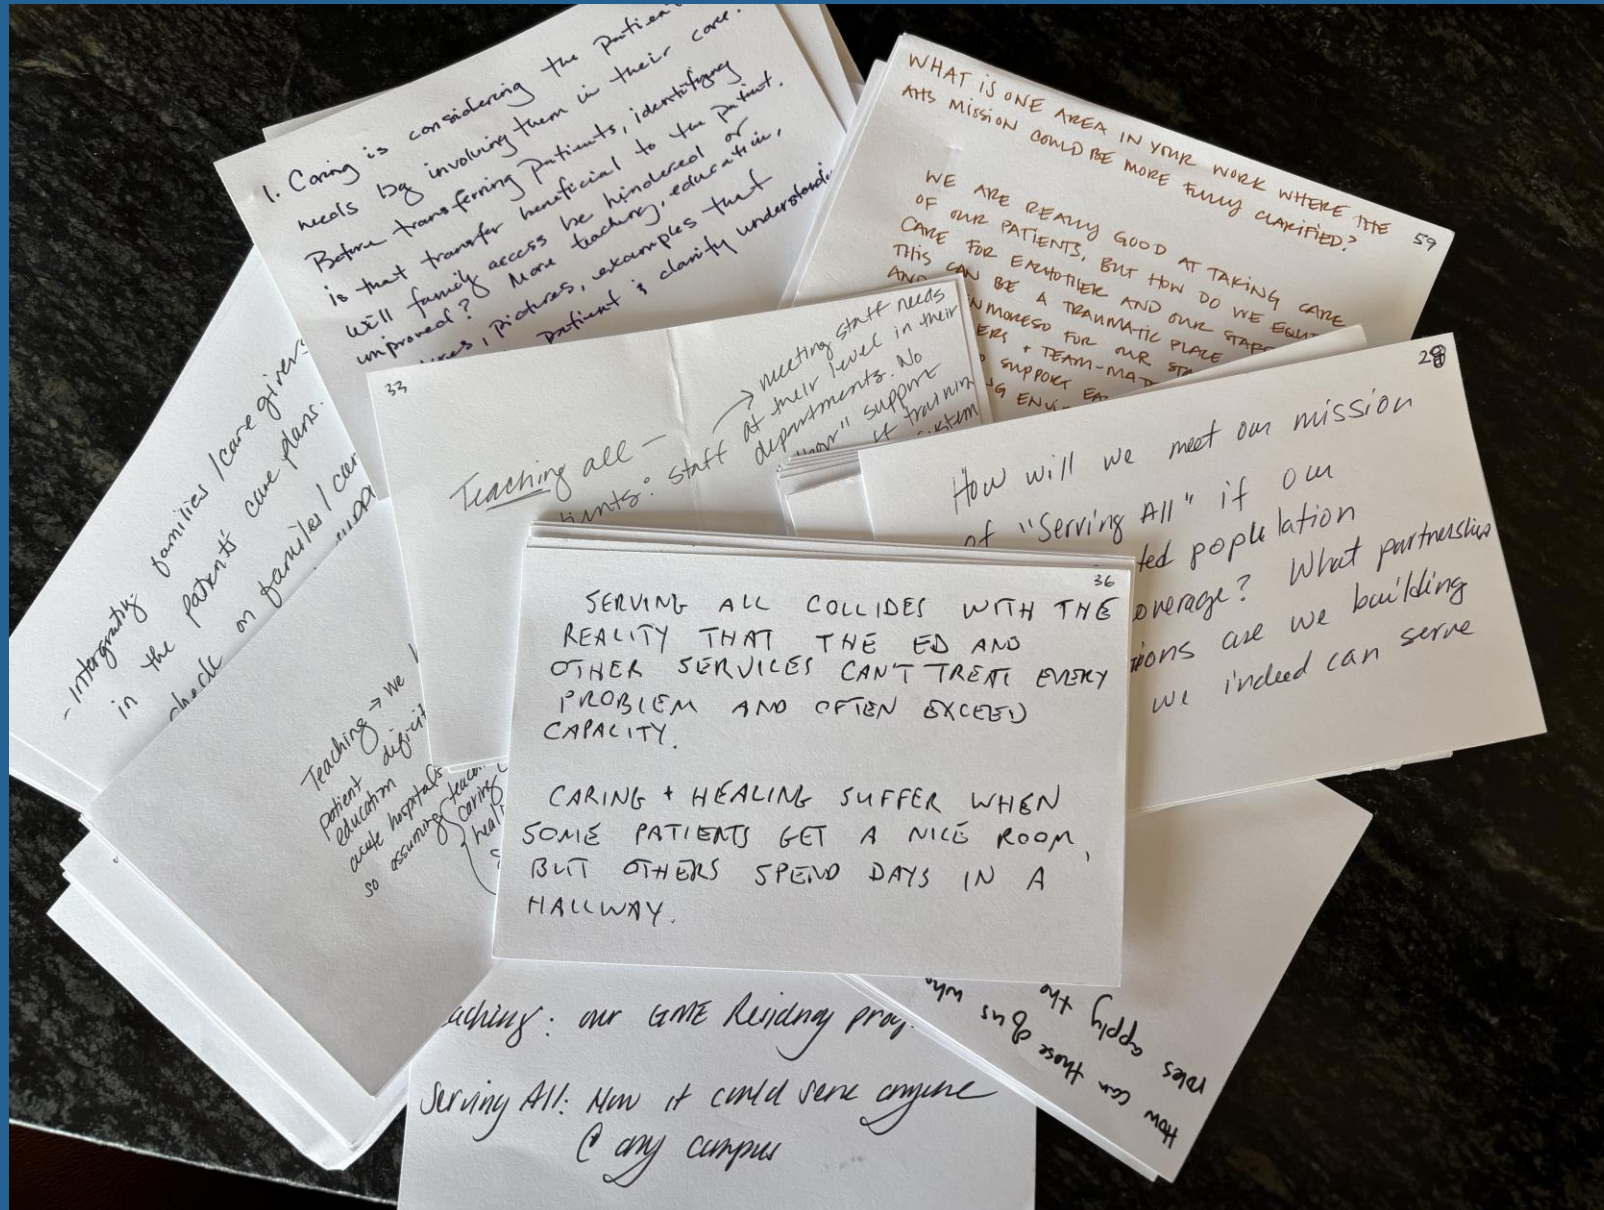 1. Caring is considering the patient
needs by involving them in their care.
Before transferring patients, identifying
is that transfer beneficial to the patient.
Will family access be hindered or
improved? More teaching, education,
pictures, examples that
patient & clarity
WHAT IS ONE AREA IN YOUR WORK WHERE THE
AHS MISSION COULD BE MORE FULLY CLARIFIED?
59
WE ARE REALLY GOOD AT TAKING CARE
OF OUR PATIENTS, BUT HOW DO WE
CARE FOR EACHOTHER AND OUR STAFF
THIS CAN BE A TRAUMATIC PLACE
MORESO FOR OUR
+ TEAM-
SUPPORT
33
Teaching all – → meeting staff needs
at their level in their
departments. No
support
staff
28
How will we meet our mission
of "Serving All" if our
population
What partnerships
are we building
we indeed can serve
- Intergrating families / care givers
in the patients' care plans.
check on families /
Teaching → we
patient
education
acute hospitals
so assuming
caring
36
SERVING ALL COLLIDES WITH THE
REALITY THAT THE ED AND
OTHER SERVICES CAN'T TREAT EVERY
PROBLEM AND OFTEN EXCEED
CAPACITY.
CARING + HEALING SUFFER WHEN
SOME PATIENTS GET A NICE ROOM,
BUT OTHERS SPEND DAYS IN A
HALLWAY.
our GME Residncy
Serving All: How it could serve anyone
@ any campus
How can those of us who
roles apply the